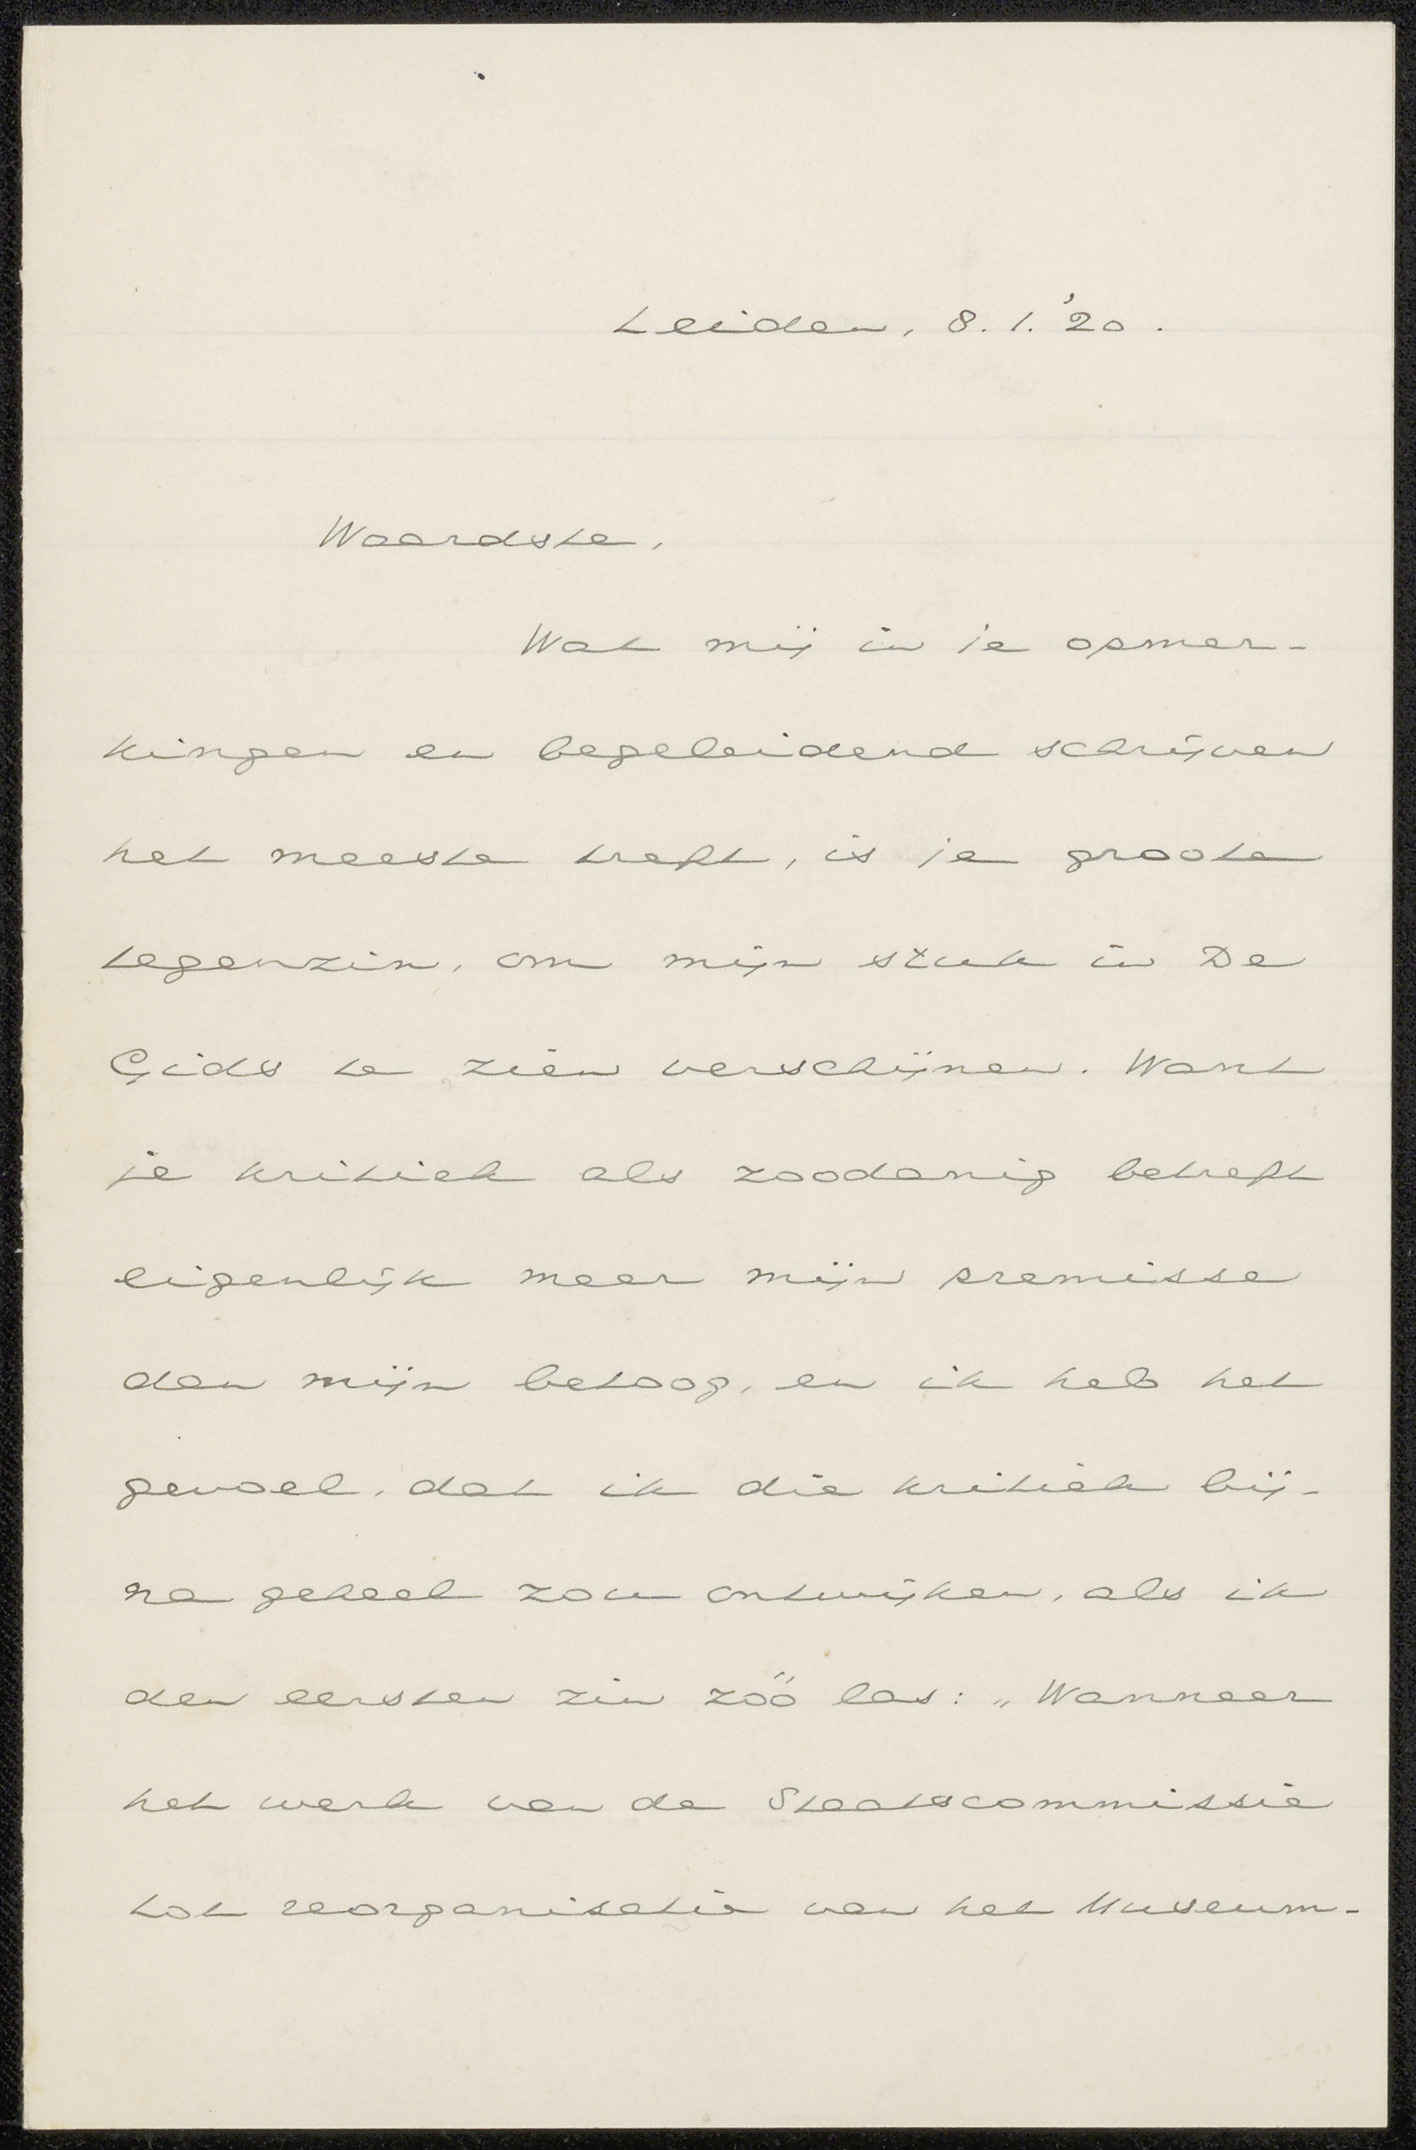 Leiden, 8.1.'20.
Waardste,
Wat mij in je opmer-
kingen en begeleidend schrijven
het meeste treft, is je groote
tegenzin, om mijn stuk in De
Gids te zien verschijnen. Want
je kritiek als zoodanig betreft
eigenlijk meer mijn premisse
dan mijn betoog, en ik heb het
gevoel, dat ik die kritiek bij-
na geheel zou ontwijken, als ik
den eersten zin zóó las: „Wanneer
het werk van de Staatscommissie
tot reorganisatie van het Museum-